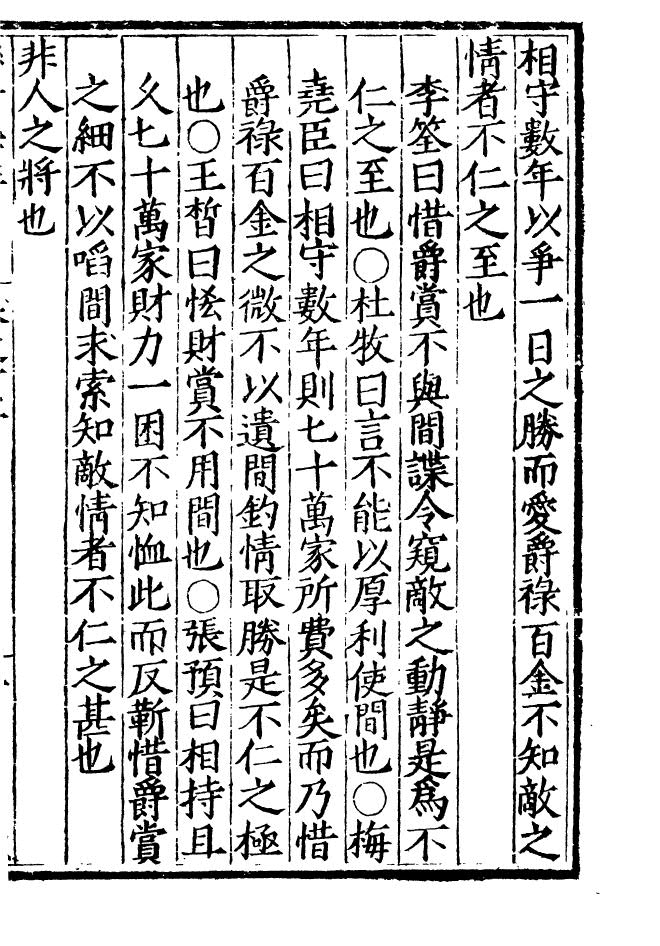 相守數年以爭一日之勝而愛爵祿百金不知敵之
情者不仁之至也
李筌曰惜爵賞不與間諜令窺敵之動靜是爲不
仁之至也○杜牧曰言不能以厚利使間也○梅
堯臣曰相守數年則七十萬家所費多矣而乃惜
爵祿百金之微不以遺間釣情取勝是不仁之極
也○王晳曰恡財賞不用間也○張預曰相持且
久七十萬家財力一困不知恤此而反靳惜爵賞
之細不以啗間求索知敵情者不仁之甚也
非人之將也